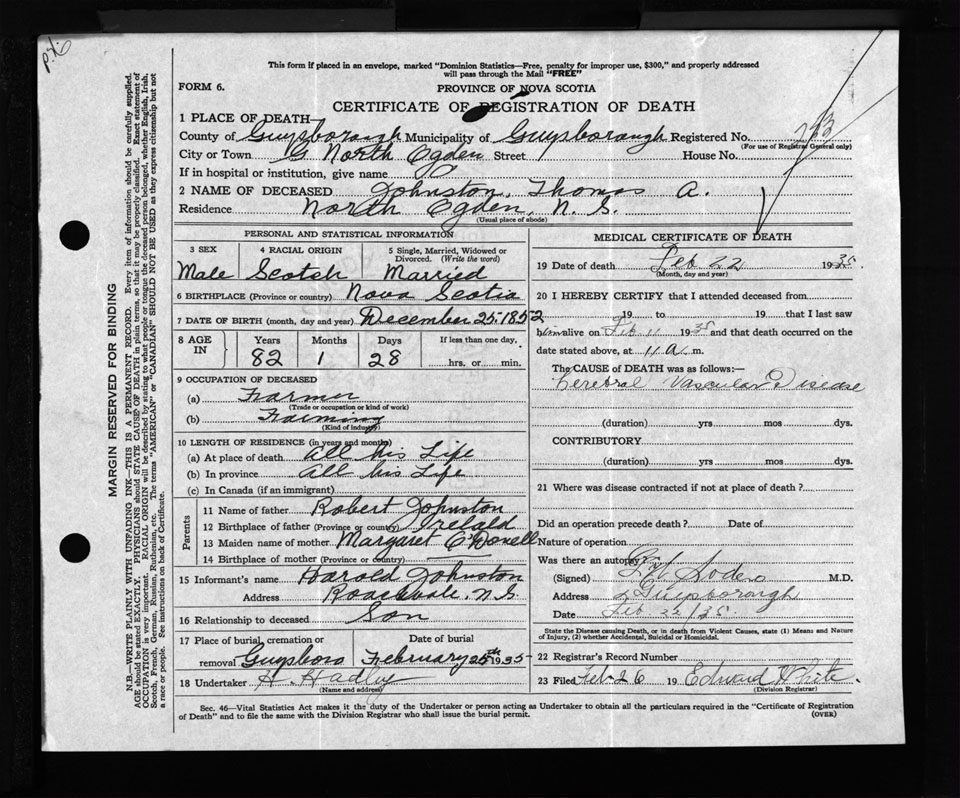 This form if placed in an envelope, marked "Dominion Statistics—Free, penalty for improper use, $300," and properly addressed
will pass through the Mail "FREE"
FORM 6.
PROVINCE OF NOVA SCOTIA
CERTIFICATE OF REGISTRATION OF DEATH
1 PLACE OF DEATH
County of Guysborough Municipality of Guysborough Registered No.
(For use of Registrar General only)
City or Town North Ogden Street House No.
If in hospital or institution, give name
2 NAME OF DECEASED Johnston, Thomas A.
Residence North Ogden, N. S.
(Usual place of abode)
PERSONAL AND STATISTICAL INFORMATION
3 SEX 4 RACIAL ORIGIN 5 Single, Married, Widowed or
Divorced. (Write the word)
Male Scotch Married
6 BIRTHPLACE (Province or country) Nova Scotia
7 DATE OF BIRTH (month, day and year) December 25-1852
8 AGE IN Years Months Days If less than one day,
82 1 28 hrs. or min.
9 OCCUPATION OF DECEASED
(a) Farmer
(Trade or occupation or kind of work)
(b) Farming
(Kind of industry)
10 LENGTH OF RESIDENCE (in years and months)
(a) At place of death All his Life
(b) In province All his Life
(c) In Canada (if an immigrant)
Parents
11 Name of father Robert Johnston
12 Birthplace of father (Province or country) Irelald
13 Maiden name of mother Margaret O'Donell
14 Birthplace of mother (Province or country)
15 Informant's name Harold Johnston
Address Roachvale, N.S.
16 Relationship to deceased Son
17 Place of burial, cremation or Date of burial
removal Guysboro February 25th 1935-
18 Undertaker H. Hadley
(Name and address)
MEDICAL CERTIFICATE OF DEATH
19 Date of death Feb 22 1935.
(Month, day and year)
20 I HEREBY CERTIFY that I attended deceased from
19 to 19 that I last saw
him alive on Feb 11 1935 and that death occurred on the
date stated above, at 11 a. m.
The CAUSE of DEATH was as follows:—
Cerebral Vascular Disease
(duration) yrs mos dys.
CONTRIBUTORY
(duration) yrs. mos. dys.
21 Where was disease contracted if not at place of death?
Did an operation precede death? Date of
Nature of operation
Was there an autopsy?
(Signed) M.D.
Address Guysborough
Date Feb 22/35.
State the Disease causing Death, or in death from Violent Causes, state (1) Means and Nature
of Injury, (2) whether Accidental, Suicidal or Homicidal.
22 Registrar's Record Number
23 Filed Feb 26 19 Edward White.
(Division Registrar)
Sec. 46—Vital Statistics Act makes it the duty of the Undertaker or person acting as Undertaker to obtain all the particulars required in the "Certificate of Registration
of Death" and to file the same with the Division Registrar who shall issue the burial permit.
(OVER)
MARGIN RESERVED FOR BINDING
N.B.—WRITE PLAINLY WITH UNFADING INK—THIS IS A PERMANENT RECORD. Every item of information should be carefully supplied.
AGE should be stated EXACTLY. PHYSICIANS should STATE CAUSE OF DEATH in plain terms, so that it may be properly classified. Exact statement of
OCCUPATION is very important. RACIAL ORIGIN will be described by stating to what people or tongue the deceased person belonged, whether English, Irish,
Scotch, French, German, Russian, Ruthenian, etc. The terms "AMERICAN" or "CANADIAN" SHOULD NOT BE USED as they express citizenship but not
a race or people. See instructions on back of Certificate.